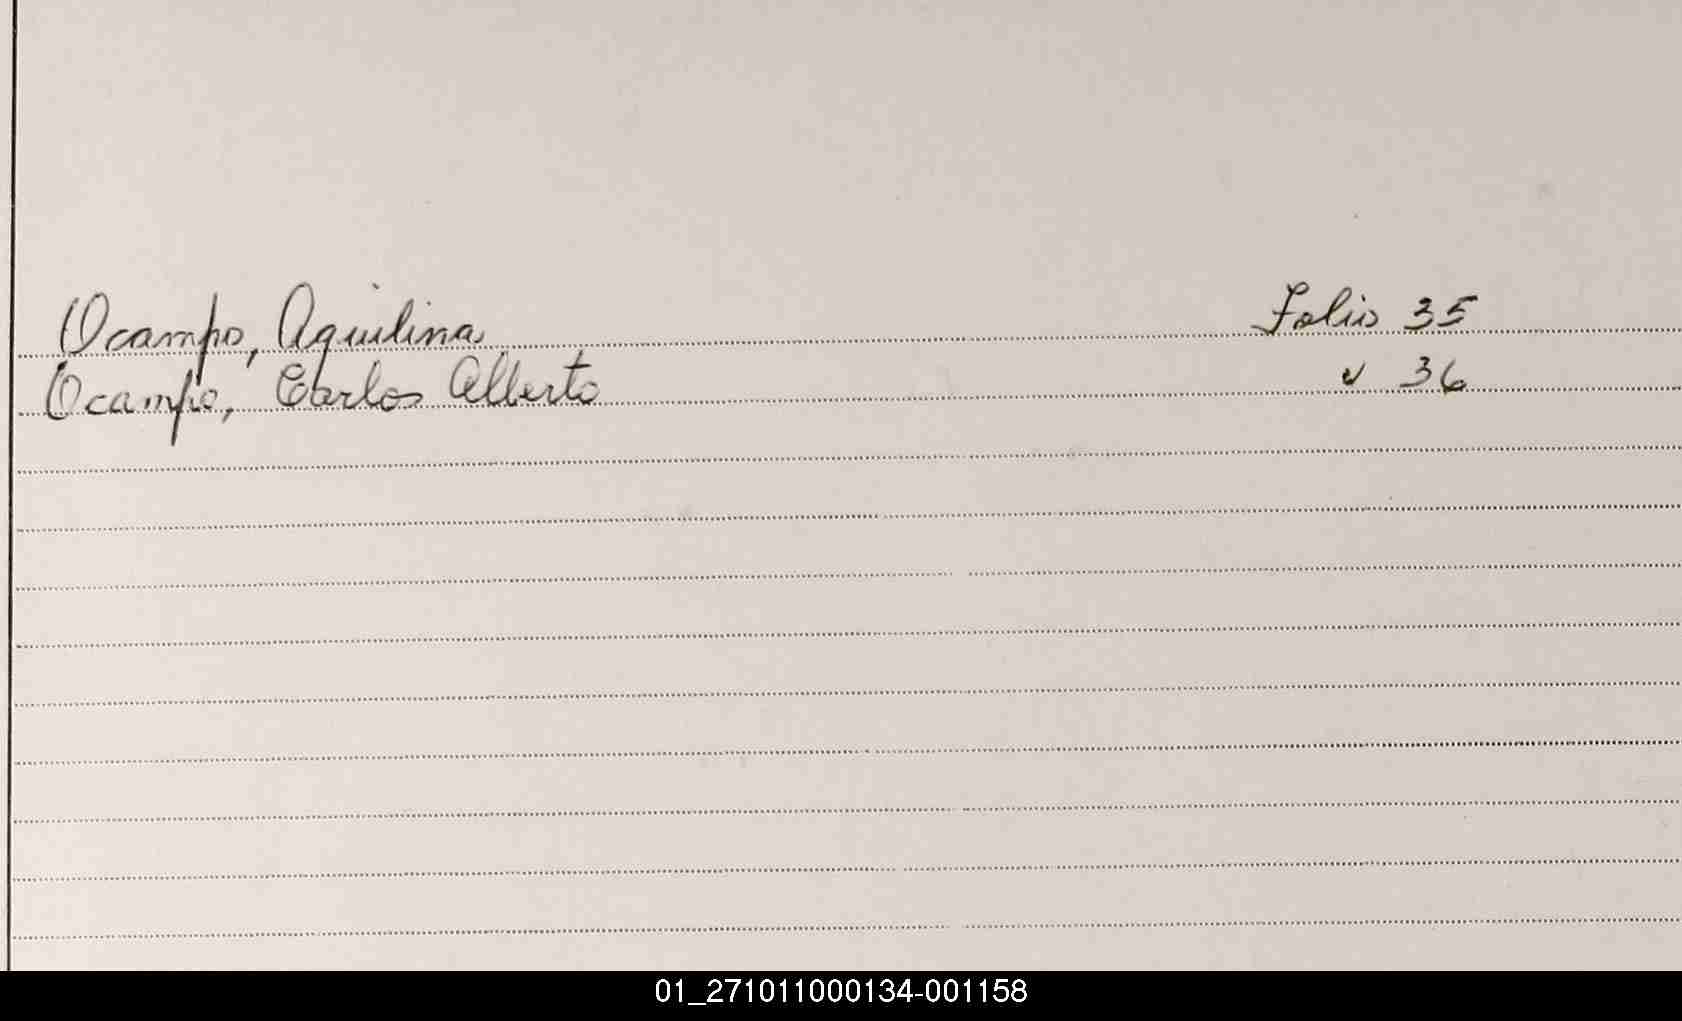 Ocampo, Aquilina Folio 35
Ocampo, Carlos Alberto " 36
01_271011000134-001158